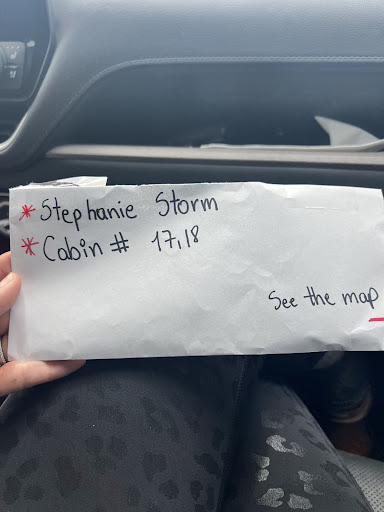 *Stephanie Storm
*Cabin # 17,18
See the map